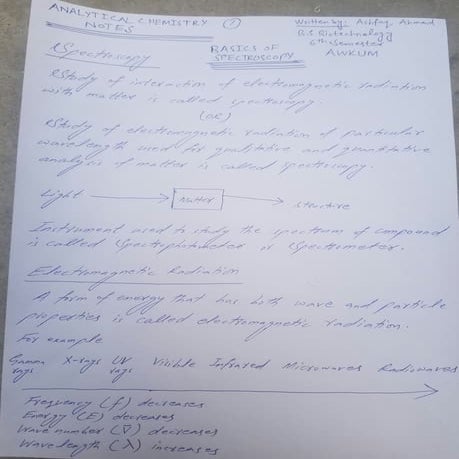 ANALYTICAL CHEMISTRY
NOTES
①
Written by: Ashfaq Ahmad
B.S Biotechnology
6th Semester
AWKUM
BASICS OF
SPECTROSCOPY
Spectroscopy
Study of interaction of electromagnetic radiation
with matter is called spectroscopy.
(OR)
Study of electromagnetic radiation of particular
wavelength used for qualitative and quantitative
analysis of matter is called spectroscopy.
Light → Matter → structure
Instrument used to study the spectrum of compound
is called Spectrophotometer or Spectrometer.
Electromagnetic Radiation
A form of energy that has both wave and particle
properties is called electromagnetic radiation.
For example
Gamma rays X-rays UV rays Visible Infrared Microwaves Radiowaves
Frequency (f) decreases
Energy (E) decreases
Wave number (ν̅) decreases
Wave length (λ) increases